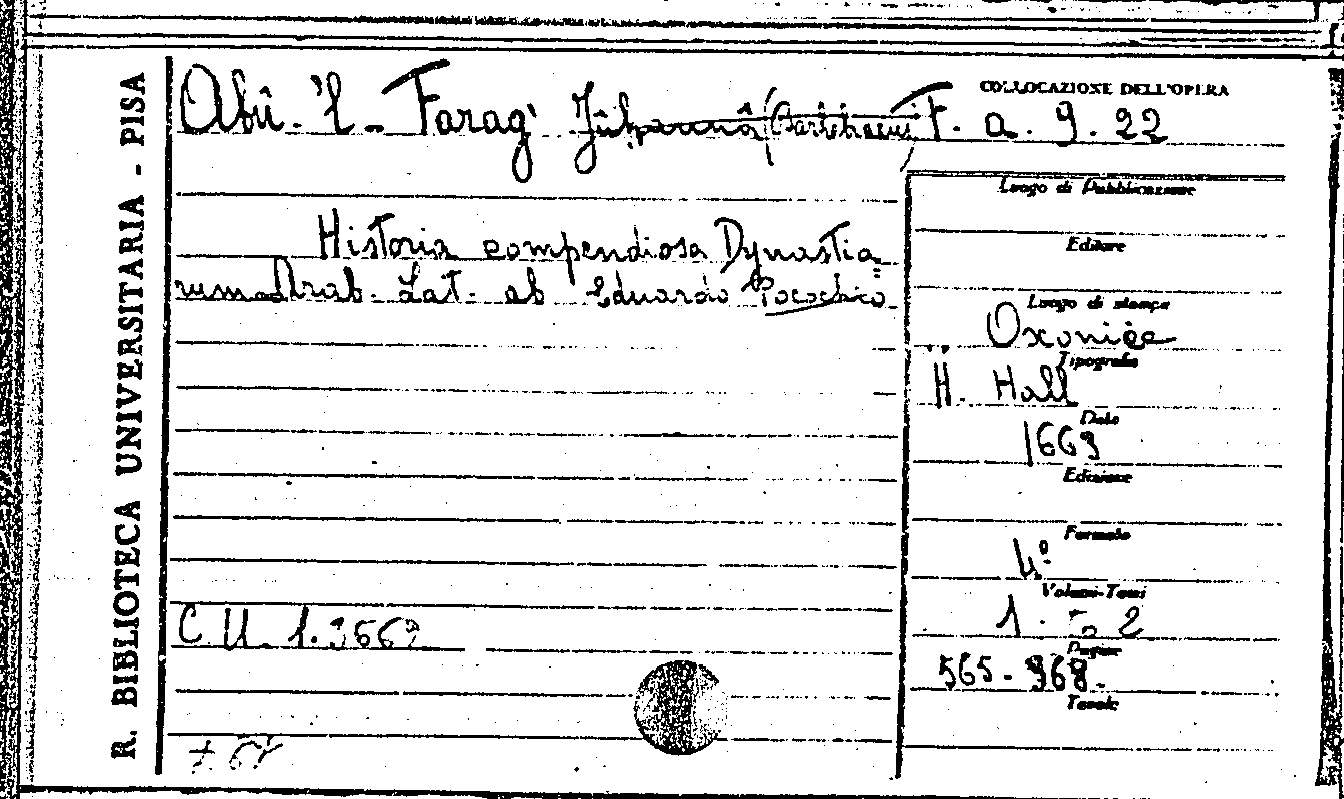 R. BIBLIOTECA UNIVERSITARIA - PISA
Abû-'l-Farag' Jûhannâ (Barhebraeus)
COLLOCAZIONE DELL'OPERA
F. a. 9. 22
Historia compendiosa Dynastia=
rum Arab. Lat. ab Eduardo Pocochio
Luogo di Pubblicazione
Editore
Luogo di stampa
Oxoniæ
Tipografia
H. Hall
Data
1663
Edizione
Formato
4º
Volumi-Tomi
1. T. 2
Pagine
565-368.
Tavole
C. U. 1.3669